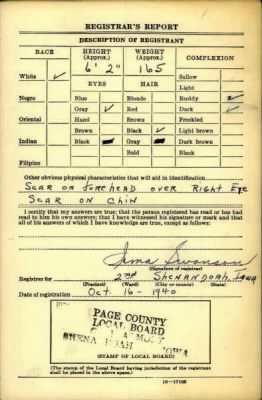 REGISTRAR'S REPORT
DESCRIPTION OF REGISTRANT
RACE HEIGHT (Approx.) WEIGHT (Approx.) COMPLEXION
White ✓ 6' 2" 165 Sallow
EYES HAIR Light
Negro Blue Blonde Ruddy ✓
Gray ✓ Red Dark ✓
Oriental Hazel Brown Freckled
Brown Black ✓ Light brown
Indian Black Gray Dark brown
Bald Black
Filipino
Other obvious physical characteristics that will aid in identification
Scar on forehead over Right Eye
Scar on chin
I certify that my answers are true; that the person registered has read or has had
read to him his own answers; that I have witnessed his signature or mark and that
all of his answers of which I have knowledge are true, except as follows:
Irma Swanson
(Signature of registrar)
Registrar for 2nd Shenandoah, Iowa
(Precinct) (Ward) (City or county) (State)
Date of registration Oct. 16 - 1940
PAGE COUNTY
LOCAL BOARD
IOWA
(STAMP OF LOCAL BOARD)
(The stamp of the Local Board having jurisdiction of the registrant
shall be placed in the above space.)
16—17105